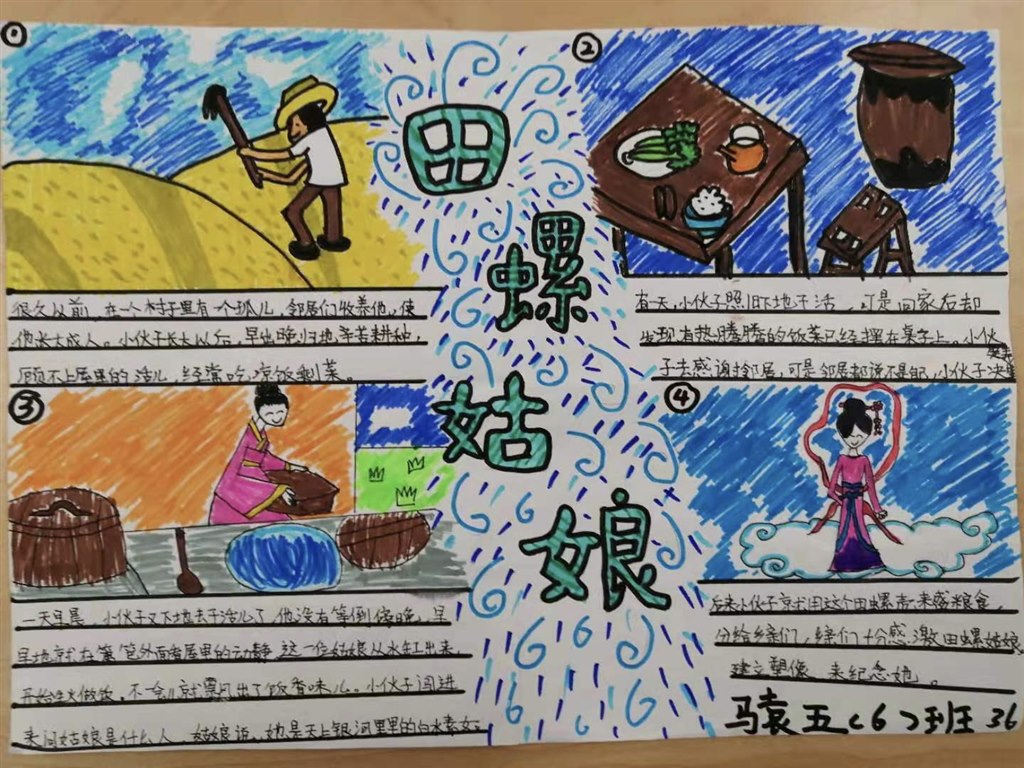 ①
很久以前,在一个村子里有一个孤儿,邻居们收养他,使
他长大成人。小伙子长大以后,早出晚归地辛苦耕种,
顾不上屋里的活儿,经常吃凉饭剩菜。
田螺姑娘
②
有一天,小伙子照旧下地干活,可是回家后却
发现有热腾腾的饭菜已经摆在桌子上。小伙
子去感谢邻居,可是邻居都说不是自己,小伙子决
③
一天早晨,小伙子又下地去干活儿了,他没有等到傍晚,早
早地就在篱笆外面看屋里的动静,这一位姑娘从水缸出来,
开始生火做饭,不一会儿就飘出了饭香味儿。小伙子闯进
来问姑娘是什么人,姑娘说,她是天上银河里的白水素女。
④
后来小伙子就用这个田螺壳来盛粮食,
分给乡亲们,乡亲们十分感激田螺姑娘,
建立塑像,来纪念她。
五(6)班 36